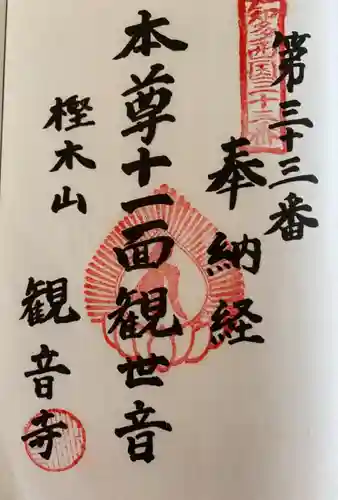 第三十三番
知多西国三十三番
奉納経
本尊十一面観世音
樫木山
観音寺